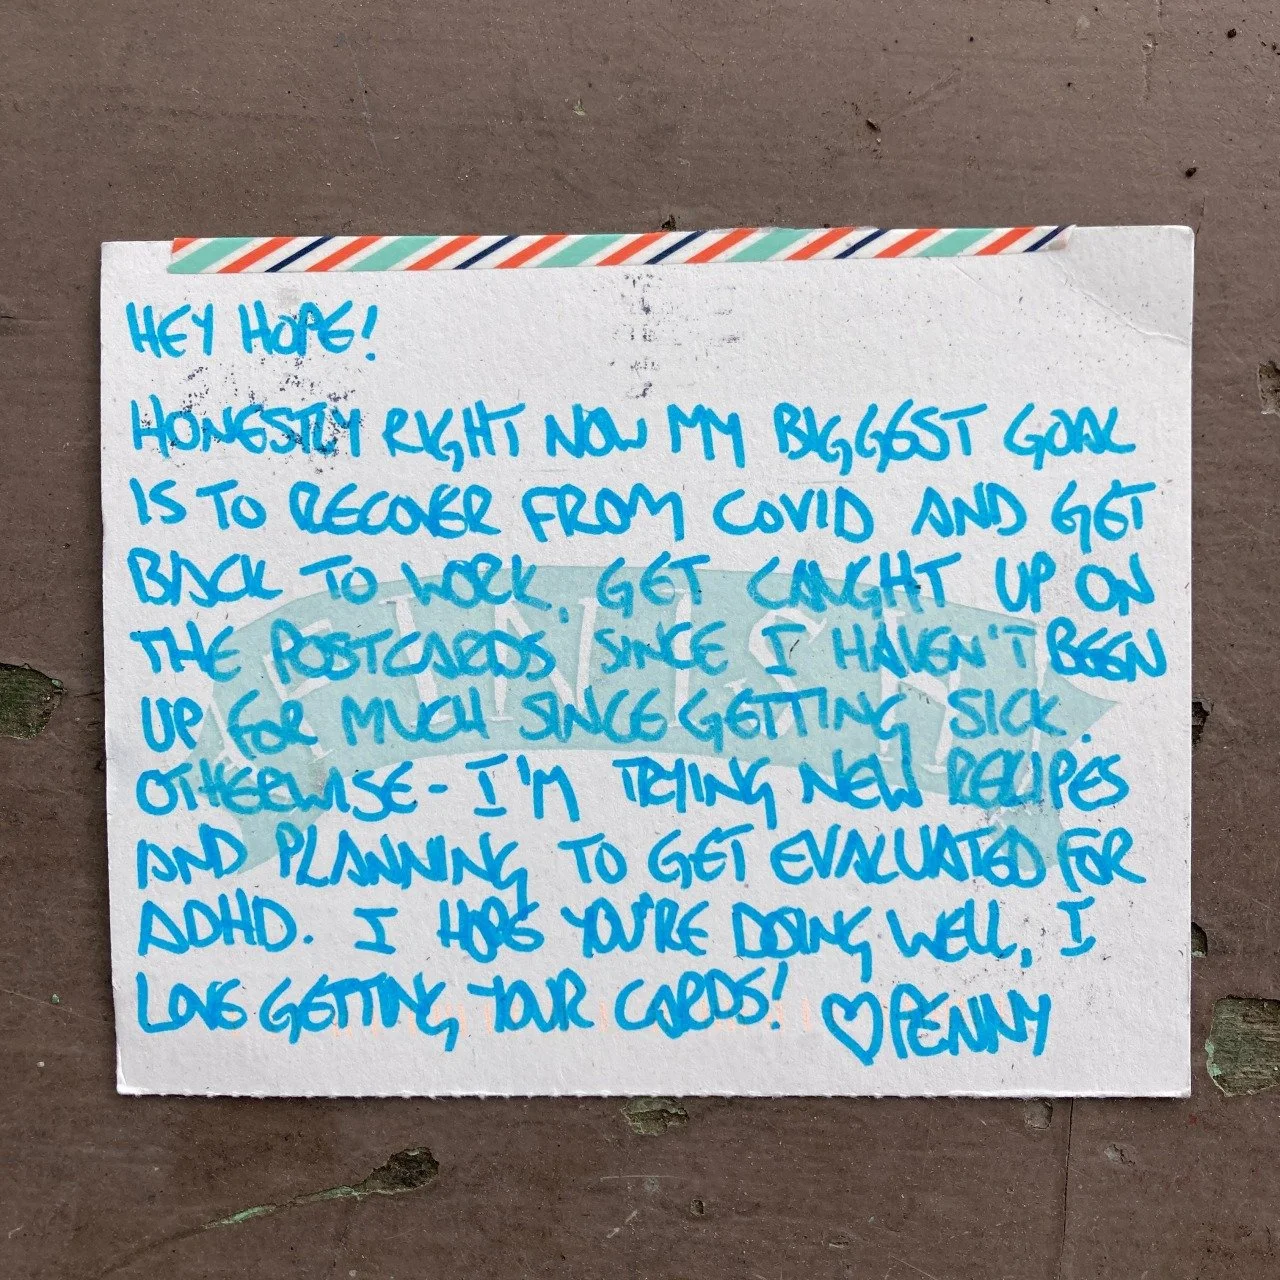 HEY HOPE!
HONESTLY RIGHT NOW MY BIGGEST GOAL
IS TO RECOVER FROM COVID AND GET
BACK TO WORK, GET CAUGHT UP ON
THE POSTCARDS SINCE I HAVEN'T BEEN
UP FOR MUCH SINCE GETTING SICK.
OTHERWISE - I'M TRYING NEW RECIPES
AND PLANNING TO GET EVALUATED FOR
ADHD. I HOPE YOU'RE DOING WELL, I
LOVE GETTING YOUR CARDS! ♡PENNY
FINISH